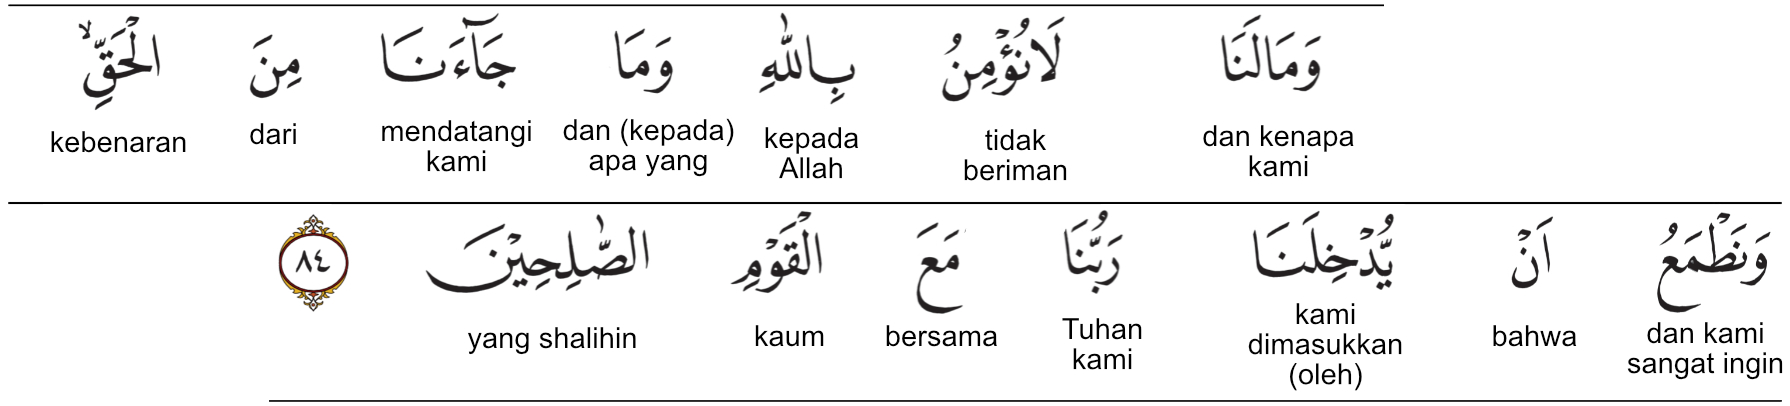 وَمَالَنَا لَانُؤْمِنُ بِاللّٰهِ وَمَا جَآءَنَا مِنَ الْحَقِّۙ
dan kenapa kami tidak beriman kepada Allah dan (kepada) apa yang mendatangi kami dari kebenaran
وَنَطْمَعُ اَنْ يُّدْخِلَنَا رَبُّنَا مَعَ الْقَوْمِ الصّٰلِحِيْنَ ٨٤
dan kami sangat ingin bahwa kami dimasukkan (oleh) Tuhan kami bersama kaum yang shalihin